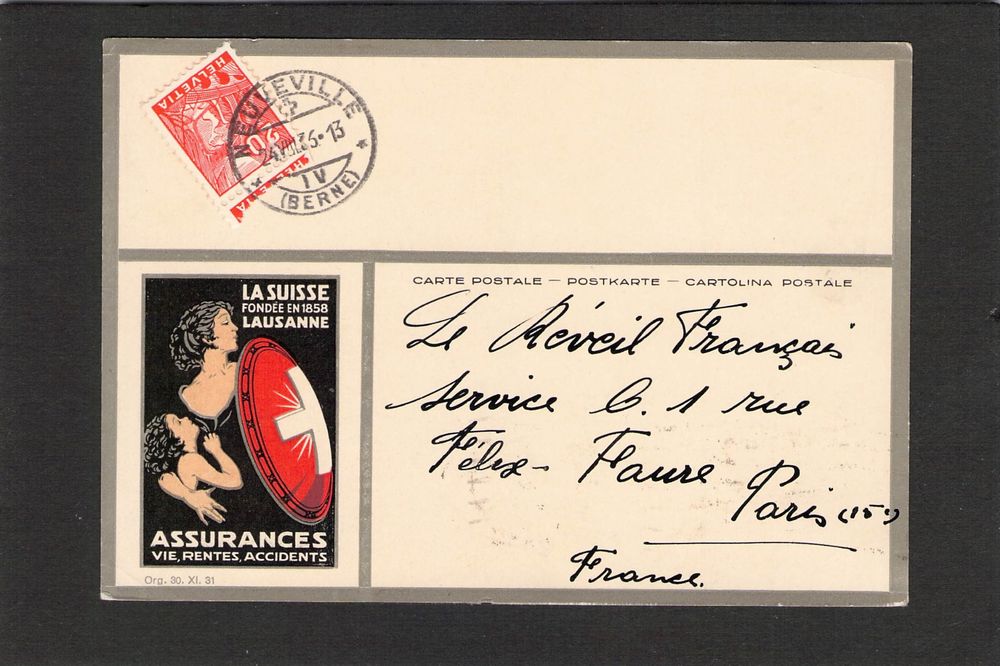 HELVETIA
20
HELVETIA
NEUVEVILLE
24.VIII.36-13
IV
(BERNE)
LA SUISSE
FONDÉE EN 1858
LAUSANNE
ASSURANCES
VIE, RENTES, ACCIDENTS
Org. 30. XI. 31
CARTE POSTALE — POSTKARTE — CARTOLINA POSTALE
Le Réveil Français
service C. 1 rue
Félix-Faure
Paris (15e)
France.